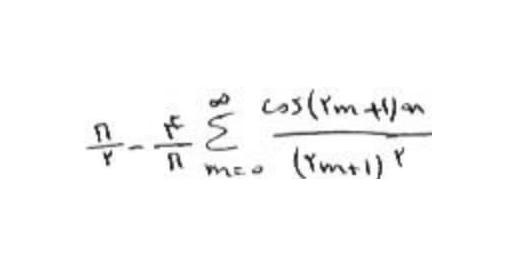 π/۲ - ۴/π ∑_{m=۰}^{∞} cos(۲m+۱)x / (۲m+۱)^۲